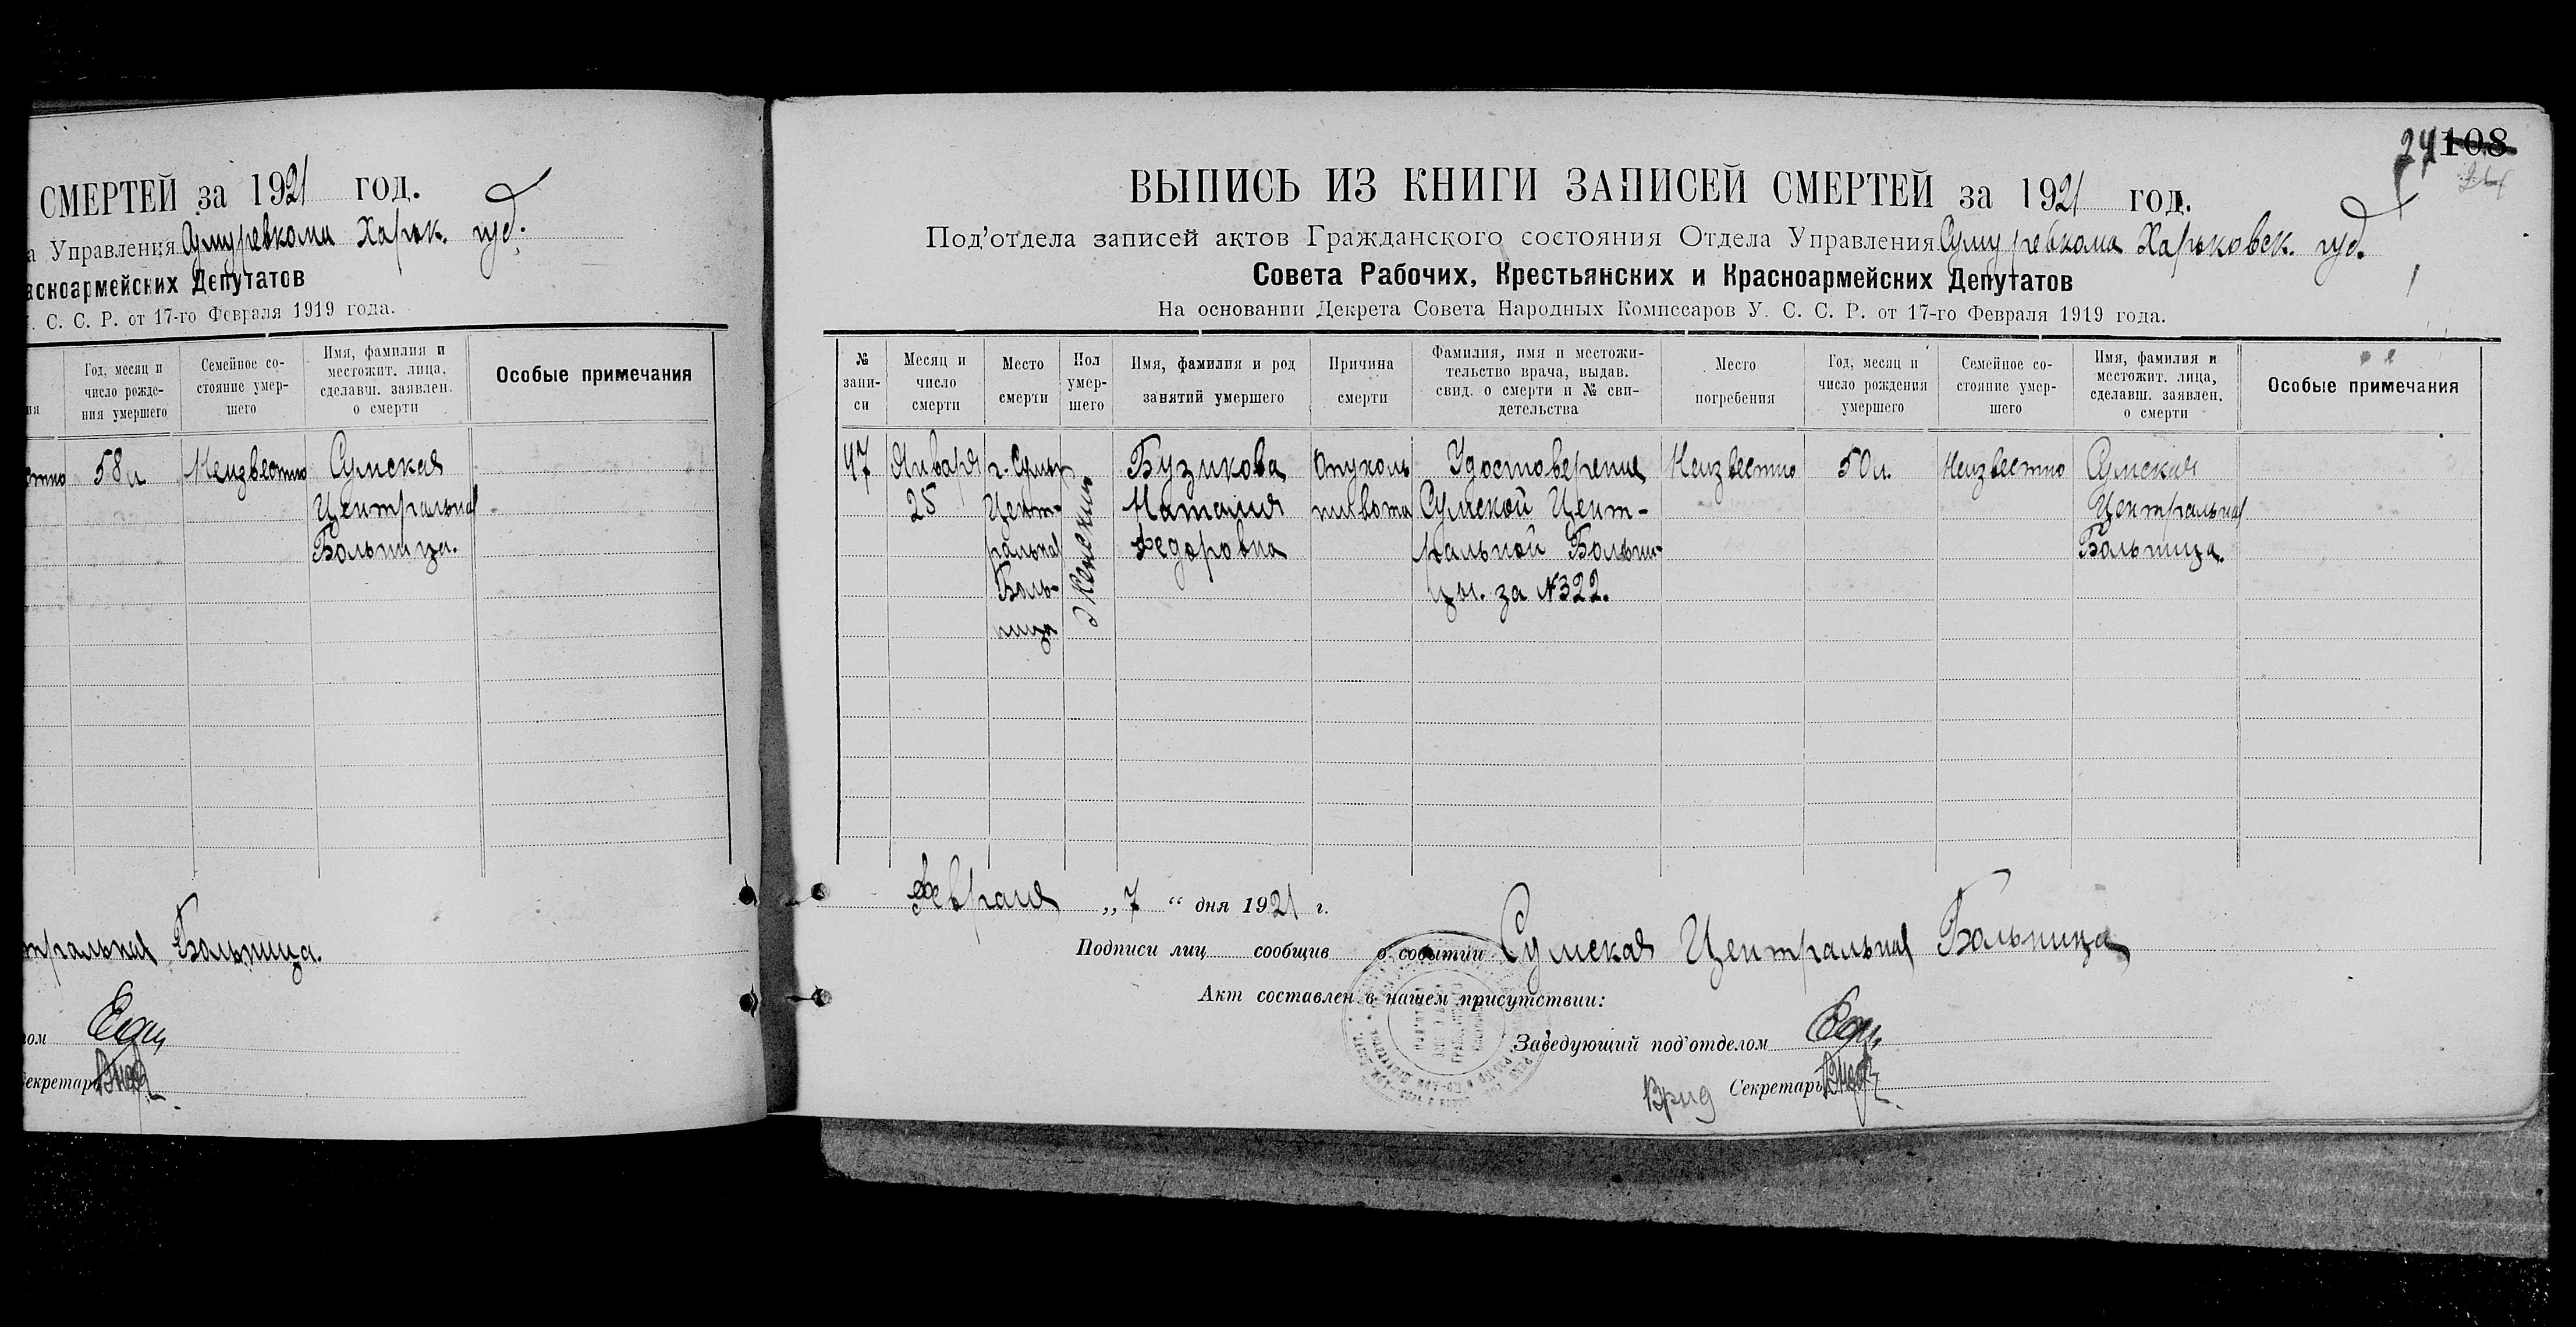 СМЕРТЕЙ за 1921 год.
а Управления Сумуревкома Харьк. губ.
асноармейских Депутатов
. С. С. Р. от 17-го Февраля 1919 года.
ия
Год, месяц и
число рожде-
ния умершего
Семейное со-
стояние умер-
шего
Имя, фамилия и
местожит. лица,
сделавш. заявлен.
о смерти
Особые примечания
стно 58 л Неизвестно Сумская
Центральная
Больница.
тральная Больница.
ом
Секретарь
24 108
ВЫПИСЬ ИЗ КНИГИ ЗАПИСЕЙ СМЕРТЕЙ за 1921 год.
Под'отдела записей актов Гражданского состояния Отдела Управления Сумуревкома Харьковск. губ.
Совета Рабочих, Крестьянских и Красноармейских Депутатов
На основании Декрета Совета Народных Комиссаров У. С. С. Р. от 17-го Февраля 1919 года.
№
запи-
си
Месяц и
число
смерти
Место
смерти
Пол
умер-
шего
Имя, фамилия и род
занятий умершего
Причина
смерти
Фамилия, имя и местожи-
тельство врача, выдав.
свид. о смерти и № сви-
детельства
Место
погребения
Год, месяц и
число рождения
умершего
Семейное со-
стояние умер-
шего
Имя, фамилия и
местожит. лица,
сделавш. заявлен.
о смерти
Особые примечания
47
Января
25
г. Сумы
Цент-
ральная
Боль-
ница
Женский
Бузикова
Наталия
Федоровна
Опухоль
живота
Удостоверение
Сумской Цент-
ральной Больни-
цы. за №322.
Неизвестно
50 л.
Неизвестно
Сумская
Центральная
Больница.
Февраля „7“ дня 1921 г.
Подписи лиц сообщив о событии Сумская Центральная Больница
Акт составлен в нашем присутствии:
Заведующий под'отделом
Врид Секретарь